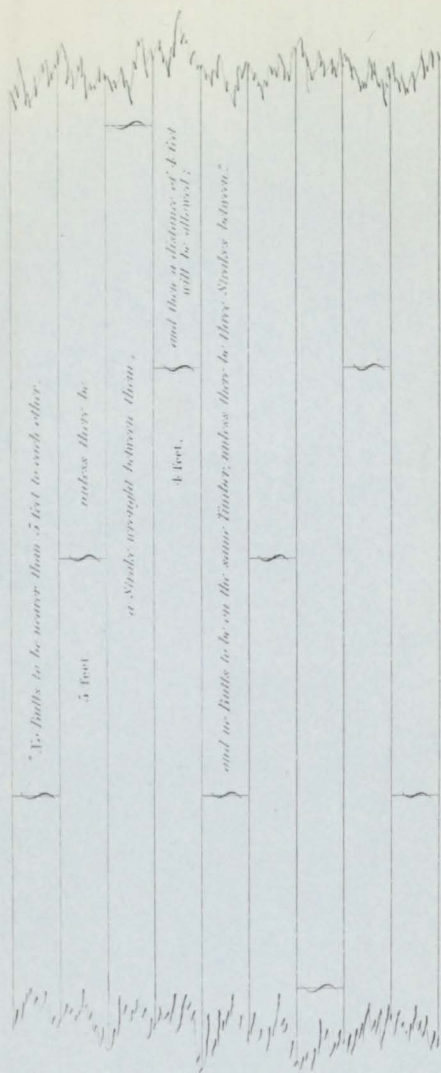 "No Butts to be nearer than 5 feet to each other,
5 feet
unless there be
a Strake wrought between them,
4 feet.
and then a distance of 4 feet
will be allowed;
and no Butts to be on the same Timber, unless there be three Strakes between."